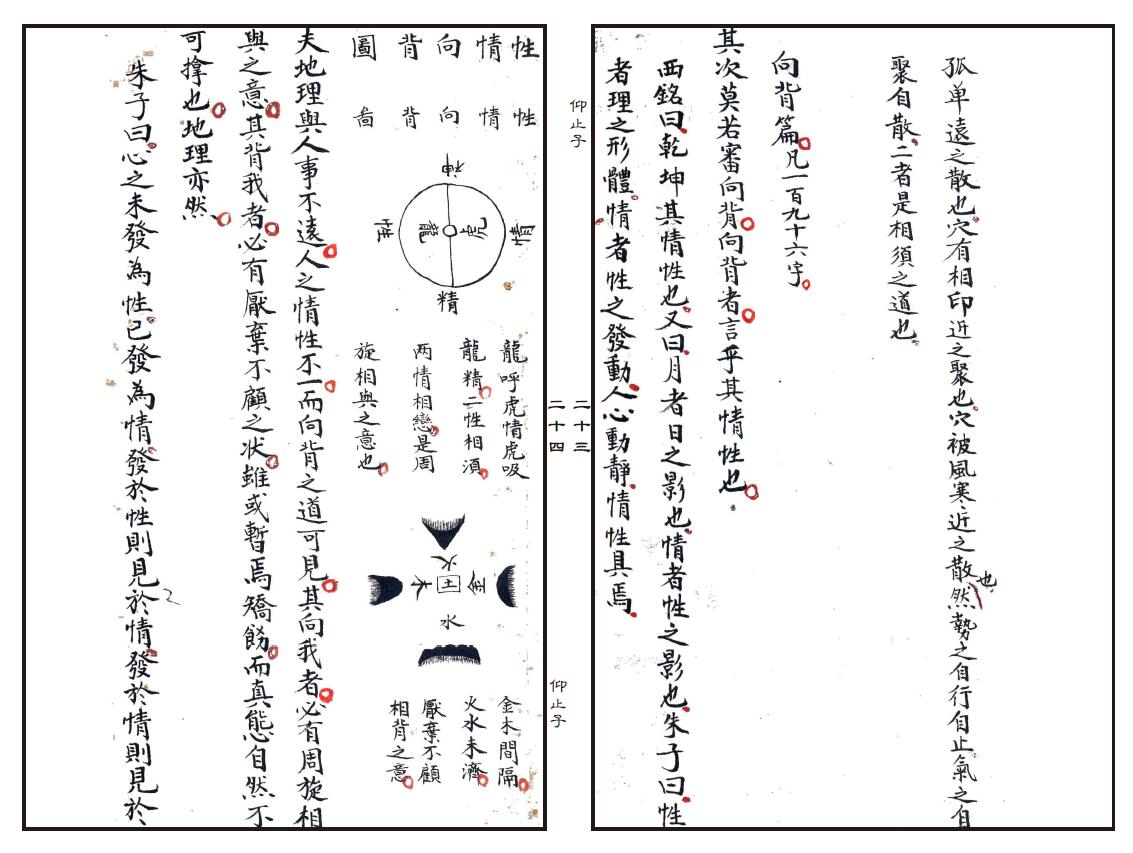 孤单遠之散也穴有相印近之聚也穴被風寒近之散也然勢之自行自止氣之自
聚自散二者是相須之道也
向背篇凡一百九十六字
其次莫若審向背向背者言乎其情性也
西銘曰乾坤其情性也又曰月者日之影也情者性之影也朱子曰性
者理之形體情者性之發動人心動靜情性具焉
仰止子
二十三
二十四
仰止子
性情向背圖
性情向背啚
神
龍
虎
性
情
精
龍呼虎情虎吸
龍精二性相湏
两情相戀是周
旋相與之意也
火
木
土
金
水
金木間隔
火水未濟
厭棄不顧
相背之意
夫地理與人事不遠人之情性不一而向背之道可見其向我者必有周旋相
與之意其背我者必有厭棄不顧之状雖或暫焉矯飭而真態自然不
可揜也地理亦然
朱子曰心之未發為性已發為情發於性則見於情發於情則見於